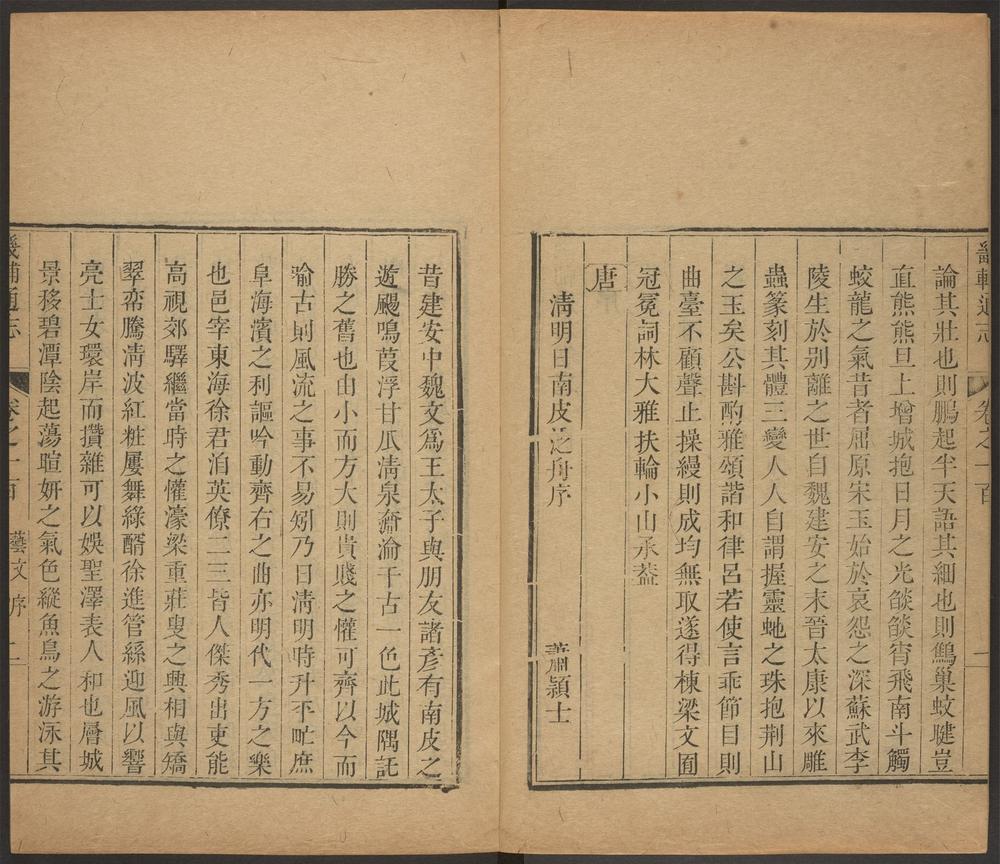 畿輔通志 卷之一百 一
論其壯也則鵬起半天語其細也則鷦巢蚊睫豈
直熊熊旦上增城抱日月之光燄燄宵飛南斗觸
蛟龍之氣昔者屈原宋玉始於哀怨之深蘇武李
陵生於別離之世自魏建安之末晉太康以來雕
蟲篆刻其體三變人人自謂握靈虵之珠抱荆山
之玉矣公斟酌雅頌諧和律呂若使言乖節目則
曲臺不顧聲止操縵則成均無取遂得棟梁文囿
冠冕詞林大雅扶輪小山承葢
唐
淸明日南皮泛舟序 蕭頴士
昔建安中魏文爲王太子與朋友諸彦有南皮之
遊颺鳴葭浮甘瓜淸泉奫淪千古一色此城隅託
勝之舊也由小而方大則貴賤之懽可齊以今而
喻古則風流之事不易矧乃日淸明時升平甿庶
阜海濱之利謳吟動齊右之曲亦明代一方之樂
也邑宰東海徐君洎英僚二三皆人傑秀出吏能
高視郊驛繼當時之懽濠梁重莊叟之興相與矯
翠帟騰淸波紅粧屢舞綠醑徐進管絲迎風以響
亮士女環岸而攢雜可以娛聖澤表人和也層城
景移碧潭陰起蕩暄姸之氣色縱魚鳥之游泳其
畿輔通志 卷之一百 藝文 序 二